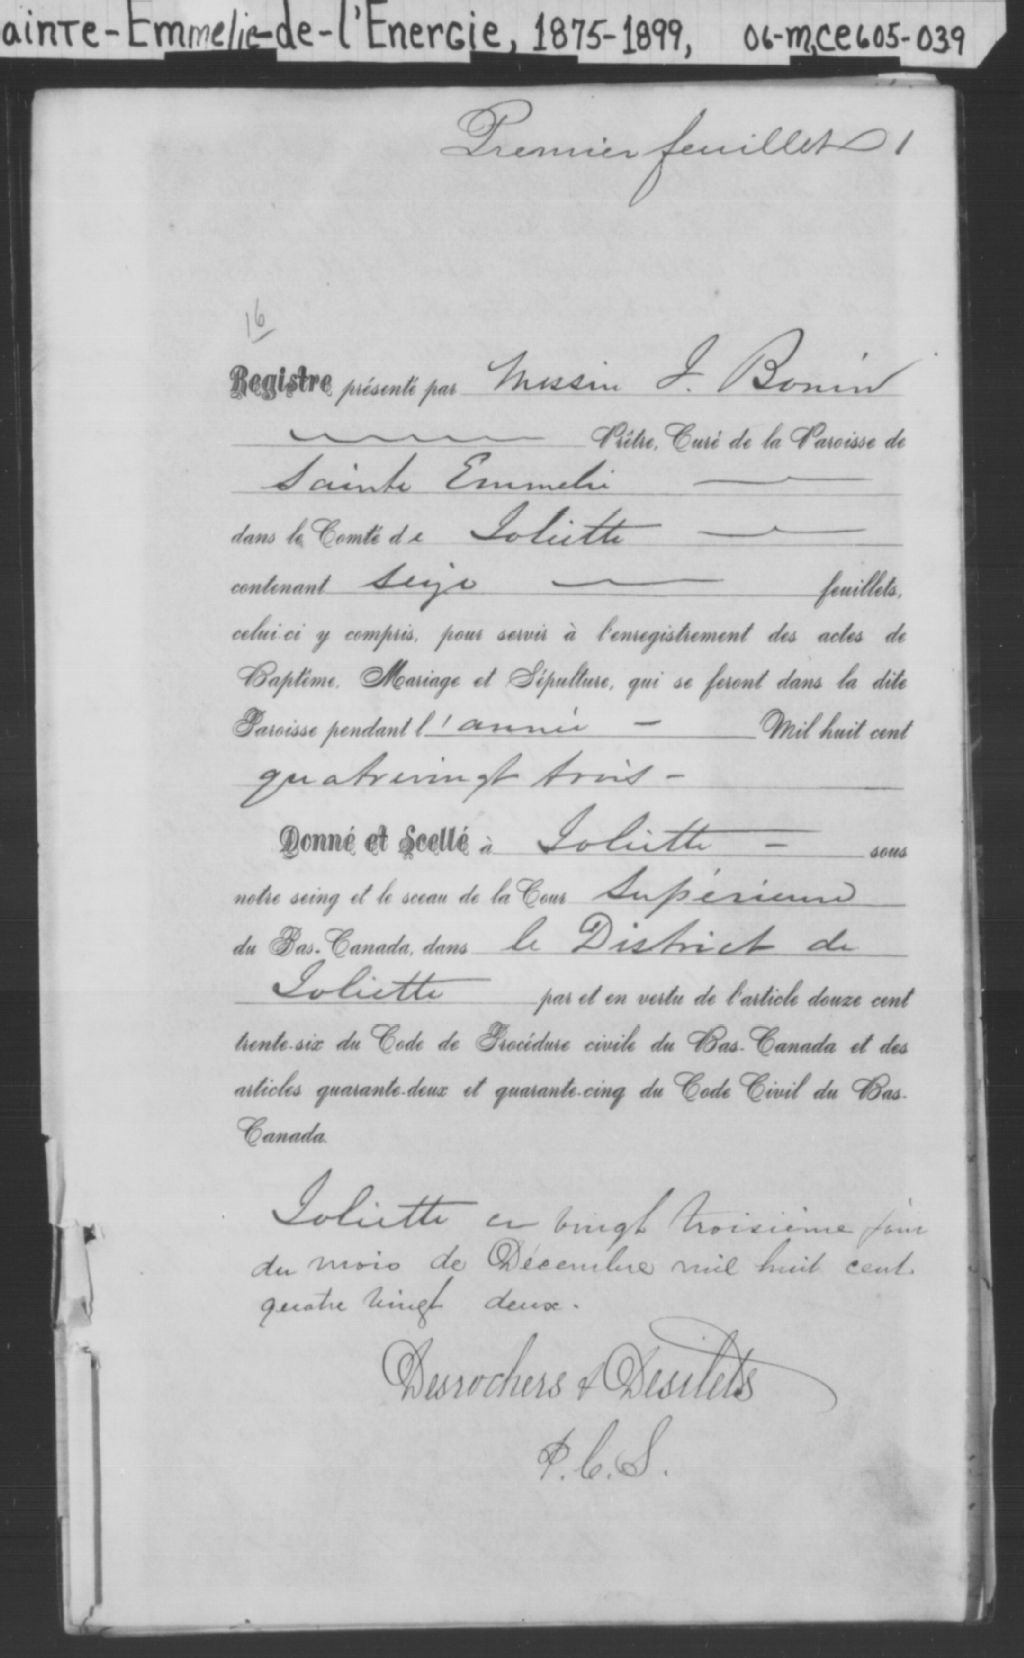 ainte-Emmelie-de-l'Energie, 1875-1899, 06-M,CE605-039
Premier feuillet 1
16
Registre présenté par Messire J. Bonin
Prêtre, Curé de la Paroisse de
Sainte Emmelie
dans le Comté de Joliette
contenant seize feuillets,
celui-ci y compris, pour servir à l'enregistrement des actes de
Baptême, Mariage et Sépulture, qui se feront dans la dite
Paroisse pendant l'année - Mil huit cent
quatrevingt trois -
Donné et Scellé à Joliette - sous
notre seing et le sceau de la Cour Supérieure
du Bas-Canada, dans le District de
Joliette par et en vertu de l'article douze cent
trente-six du Code de Procédure civile du Bas-Canada et des
articles quarante-deux et quarante-cinq du Code Civil du Bas-
Canada.
Joliette ce vingt troisième jour
du mois de Décembre mil huit cent
quatre vingt deux.
Desrochers & Desilets
P.C.S.